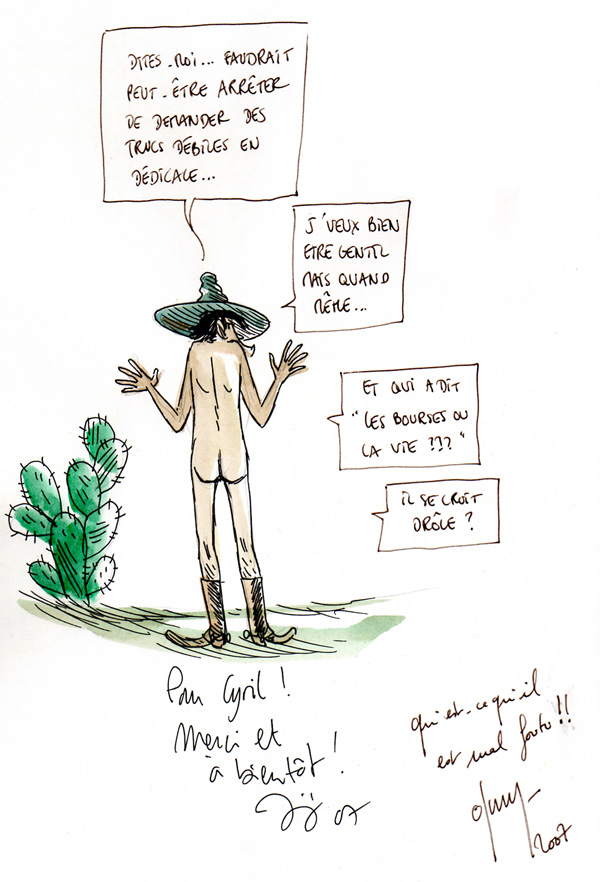 DITES-MOI... FAUDRAIT
PEUT-ÊTRE ARRÊTER
DE DEMANDER DES
TRUCS DÉBILES EN
DÉDICACE...
J'VEUX BIEN
ETRE GENTIL
MAIS QUAND
MÊME...
ET QUI A DIT
"LES BOURSES OU
LA VIE ???"
IL SE CROIT
DRÔLE ?
Pour Cyril !
Merci et
à bientôt !
07
qui est-ce qu'il
est mal foutu !!
2007